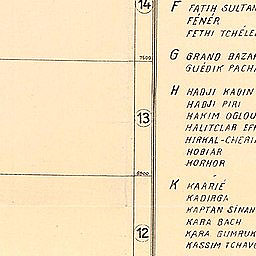 14
F FATIH SULTAN
FÉNÉR
FETHI TCHÉLE
7500
G GRAND BAZAR
GUÉDIK PACHA
H HADJI KADIN
HADJI PIRI
HAKIM OGLOU
HALITCLAR
HIRKAI-CHERIF
HOBIAR
HORHOR
13
8000
K KAARIÉ
KADIRGA
KAPTAN SINAN
KARA BACH
KARA GUMRUK
KASSIM TCHAVO
12